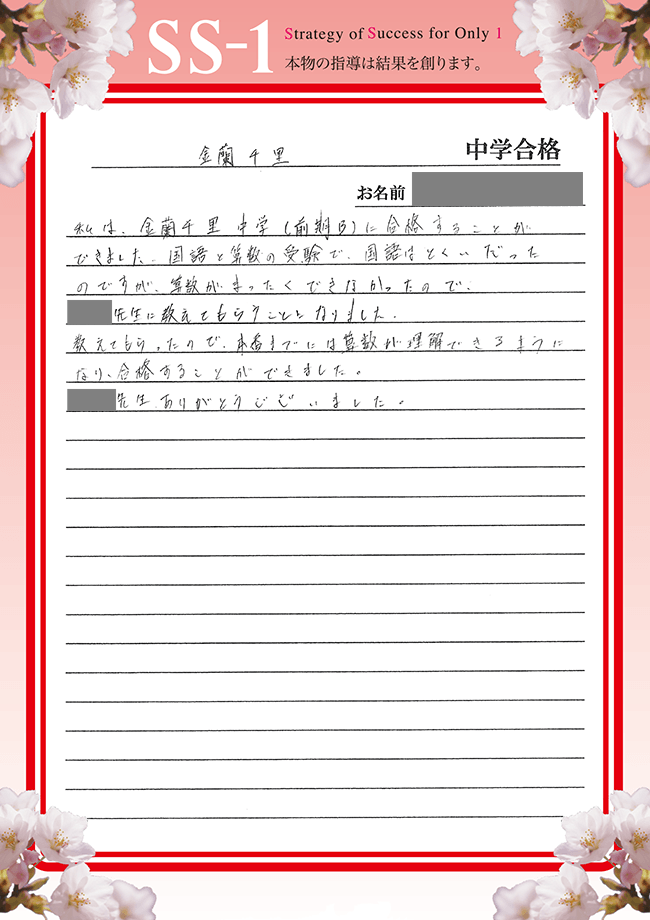 SS-1
Strategy of Success for Only 1
本物の指導は結果を創ります。
金蘭千里 中学合格
お名前
私は、金蘭千里中学(前期B)に合格することが
できました。国語と算数の受験で、国語はとくいだった
のですが、算数がまったくできなかったので、
先生に教えてもらうことになりました。
教えてもらったので、本番までには算数が理解できるように
なり、合格することができました。
先生、ありがとうございました。